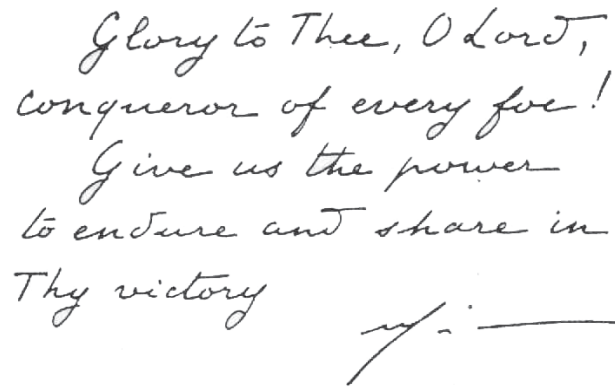 Glory to Thee, O Lord,
conqueror of every foe!
Give us the power
to endure and share in
Thy victory